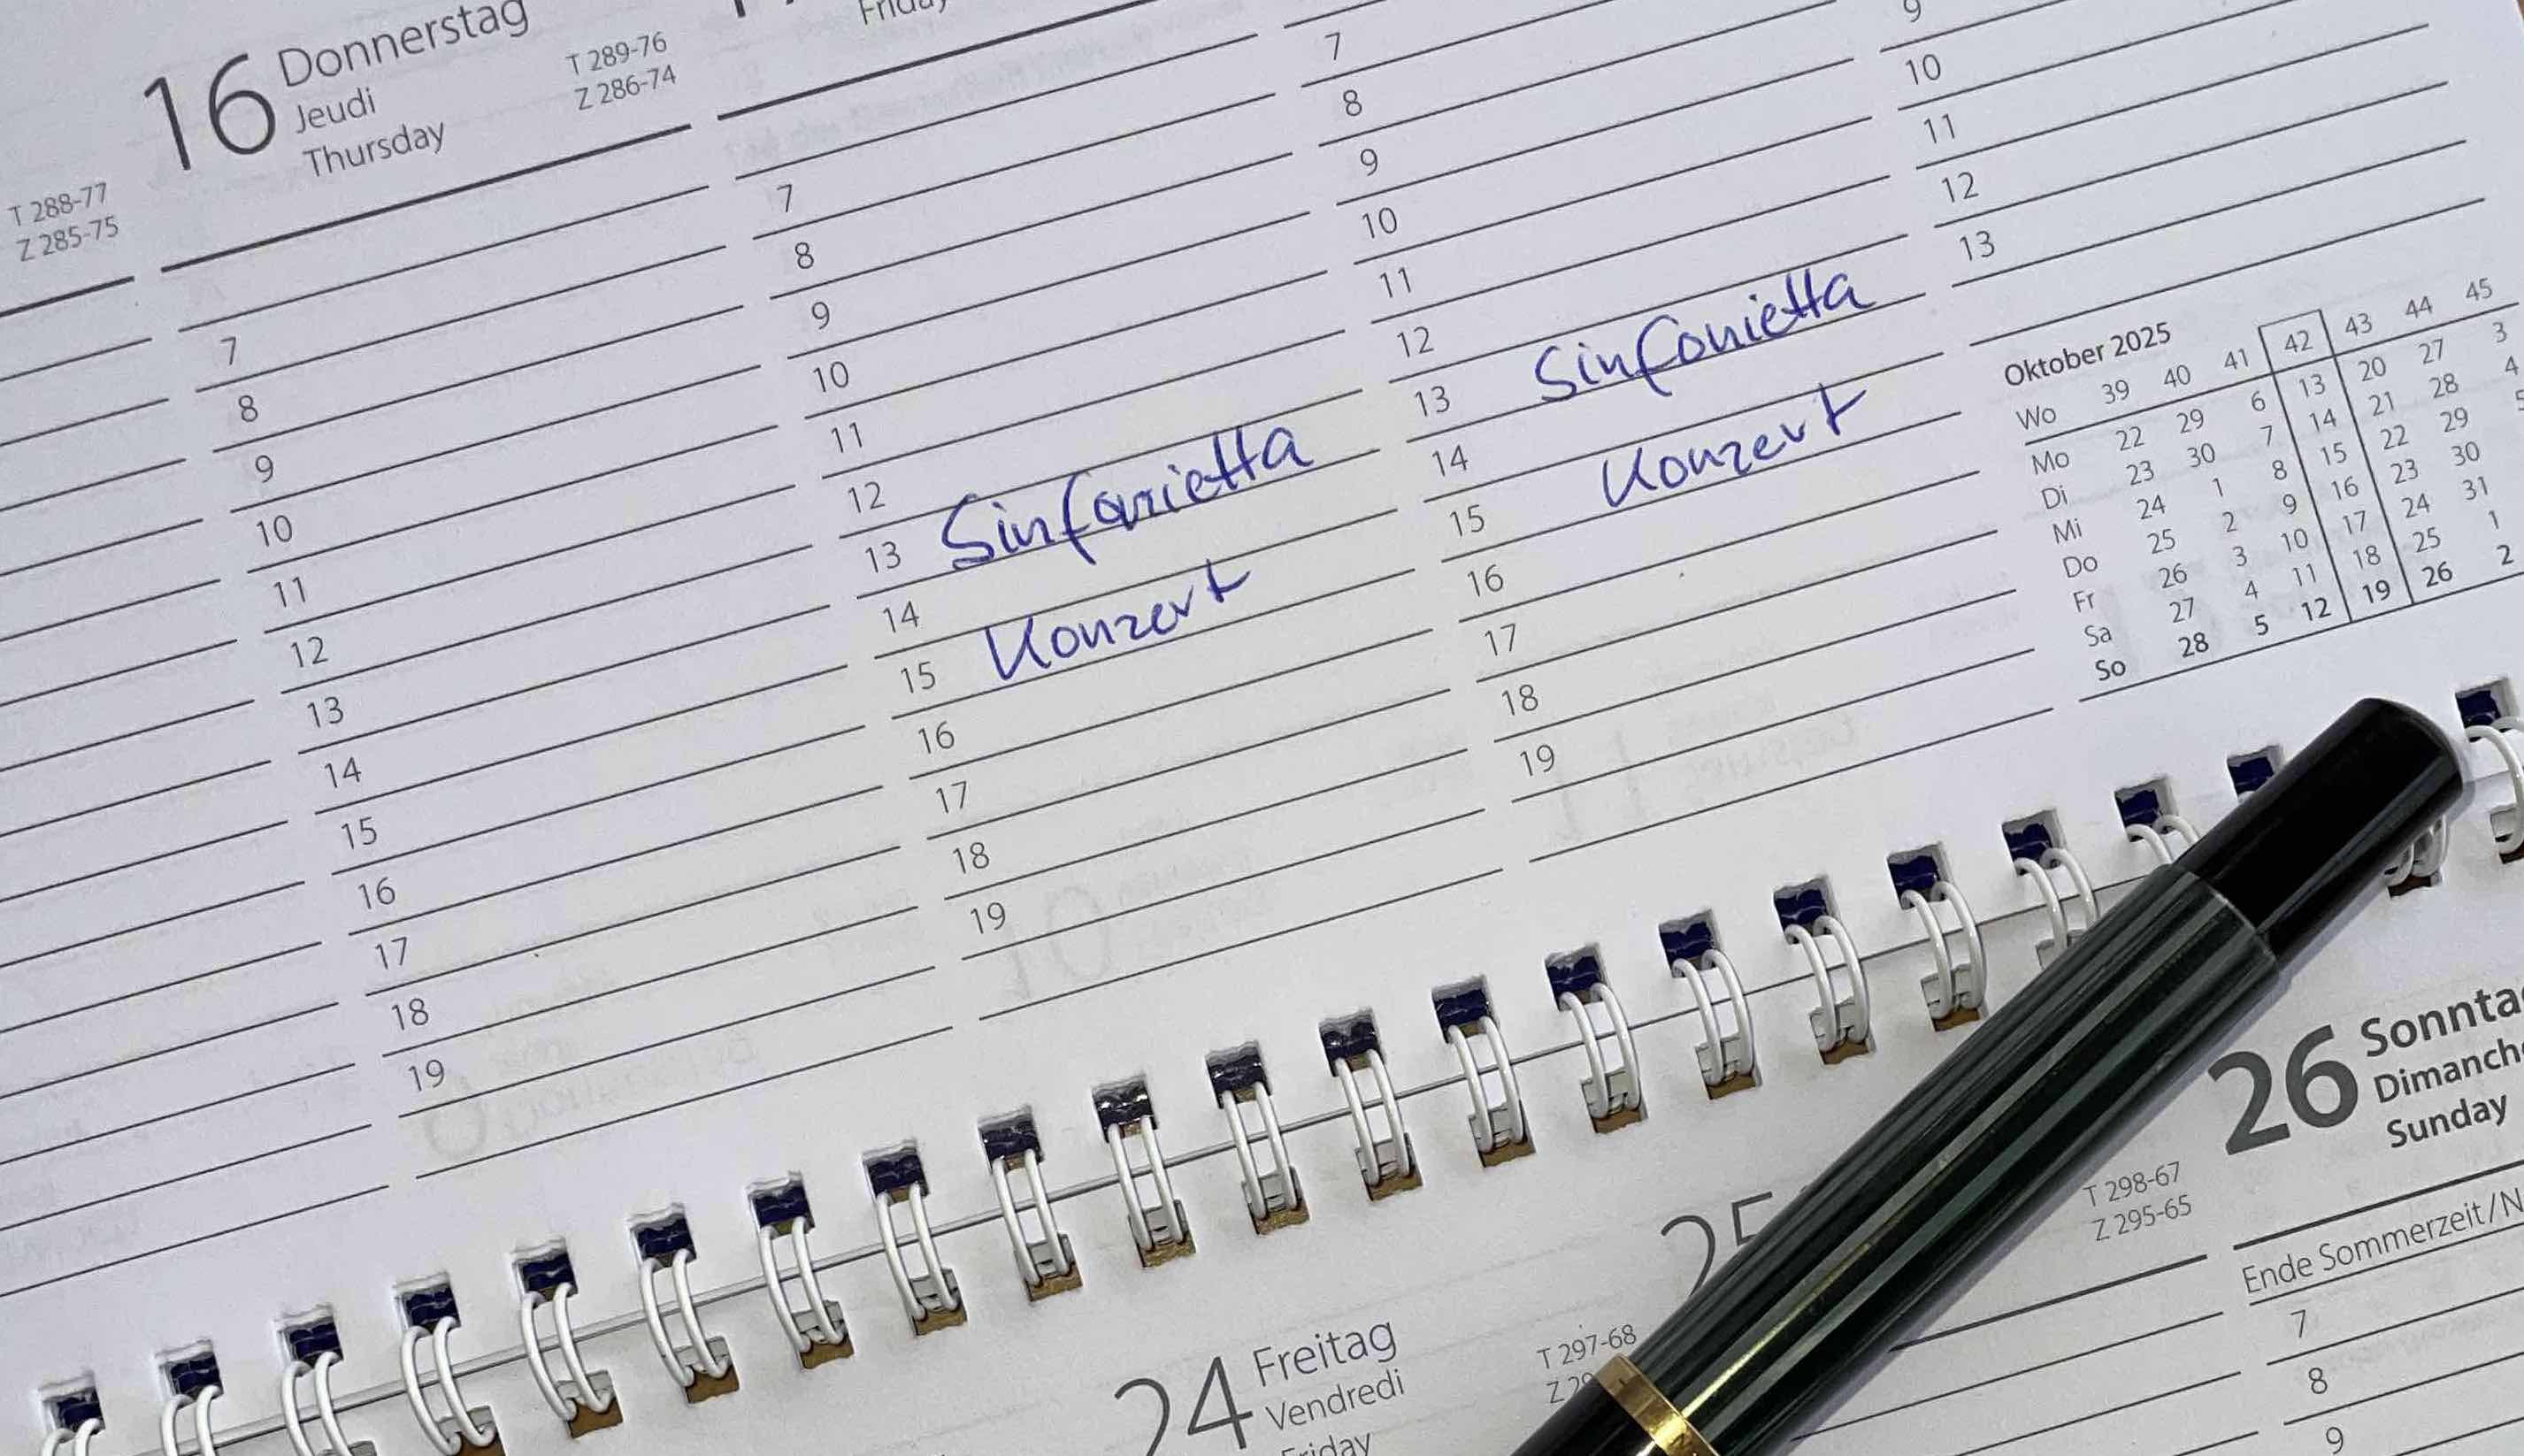 16 Donnerstag
Jeudi
Thursday
T 289-76
Z 286-74
T 288-77
Z 285-75
7
8
9
10
11
12
13
14
15
16
17
18
19
Friday
7
8
9
10
11
12
13 Sinfonietta
14
15 Konzert
16
17
18
19
7
8
9
10
11
12
13 Sinfonietta
14
15 Konzert
16
17
18
19
9
10
11
12
13
Oktober 2025
Wo 39 40 41 42 43 44 45
Mo 22 29 6 13 20 27 3
Di 23 30 7 14 21 28 4
Mi 24 1 8 15 22 29 5
Do 25 2 9 16 23 30
Fr 26 3 10 17 24 31
Sa 27 4 11 18 25 1
So 28 5 12 19 26 2
24 Freitag
Vendredi
Friday
T 297-68
25
T 298-67
Z 295-65
26 Sonnta
Dimanch
Sunday
Ende Sommerzeit/N
7
8
9